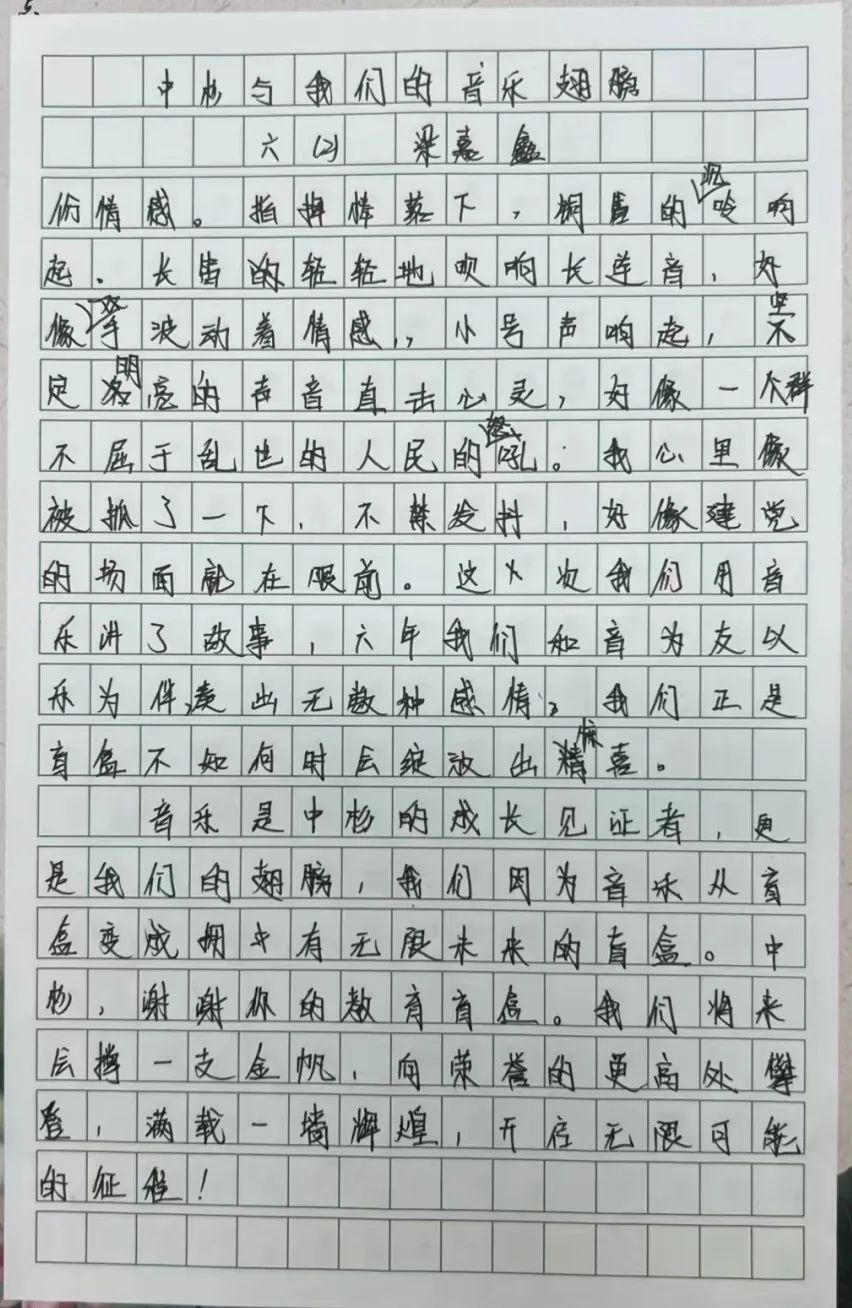 5.
中杉与我们的音乐翅膀
六(2) 梁嘉鑫
份情感。指挥棒落下，铜管的沉吟响
起．长笛的轻轻地吹响长连音，好
像双手波动着情感，，小号声响起，坚不
定明亮的声音直击心灵，好像一个群
不屈于乱世的人民的怒吼。我心里像
被抓了一下，不禁发抖，好像建党
的场面就在眼前。这次我们用音
乐讲了故事，六年我们和音为友以
乐为伴，奏出无数种感情，我们正是
盲盒不知何时会绽放出惊喜。
音乐是中杉的成长见证者，更
是我们的翅膀，我们因为音乐从盲
盒变成拥有无限未来的盲盒。中
杉，谢谢你的教育盲盒。我们将来
会撑一支金帆，向荣誉的更高处攀
登，满载一墙辉煌，开启无限可能
的征程！